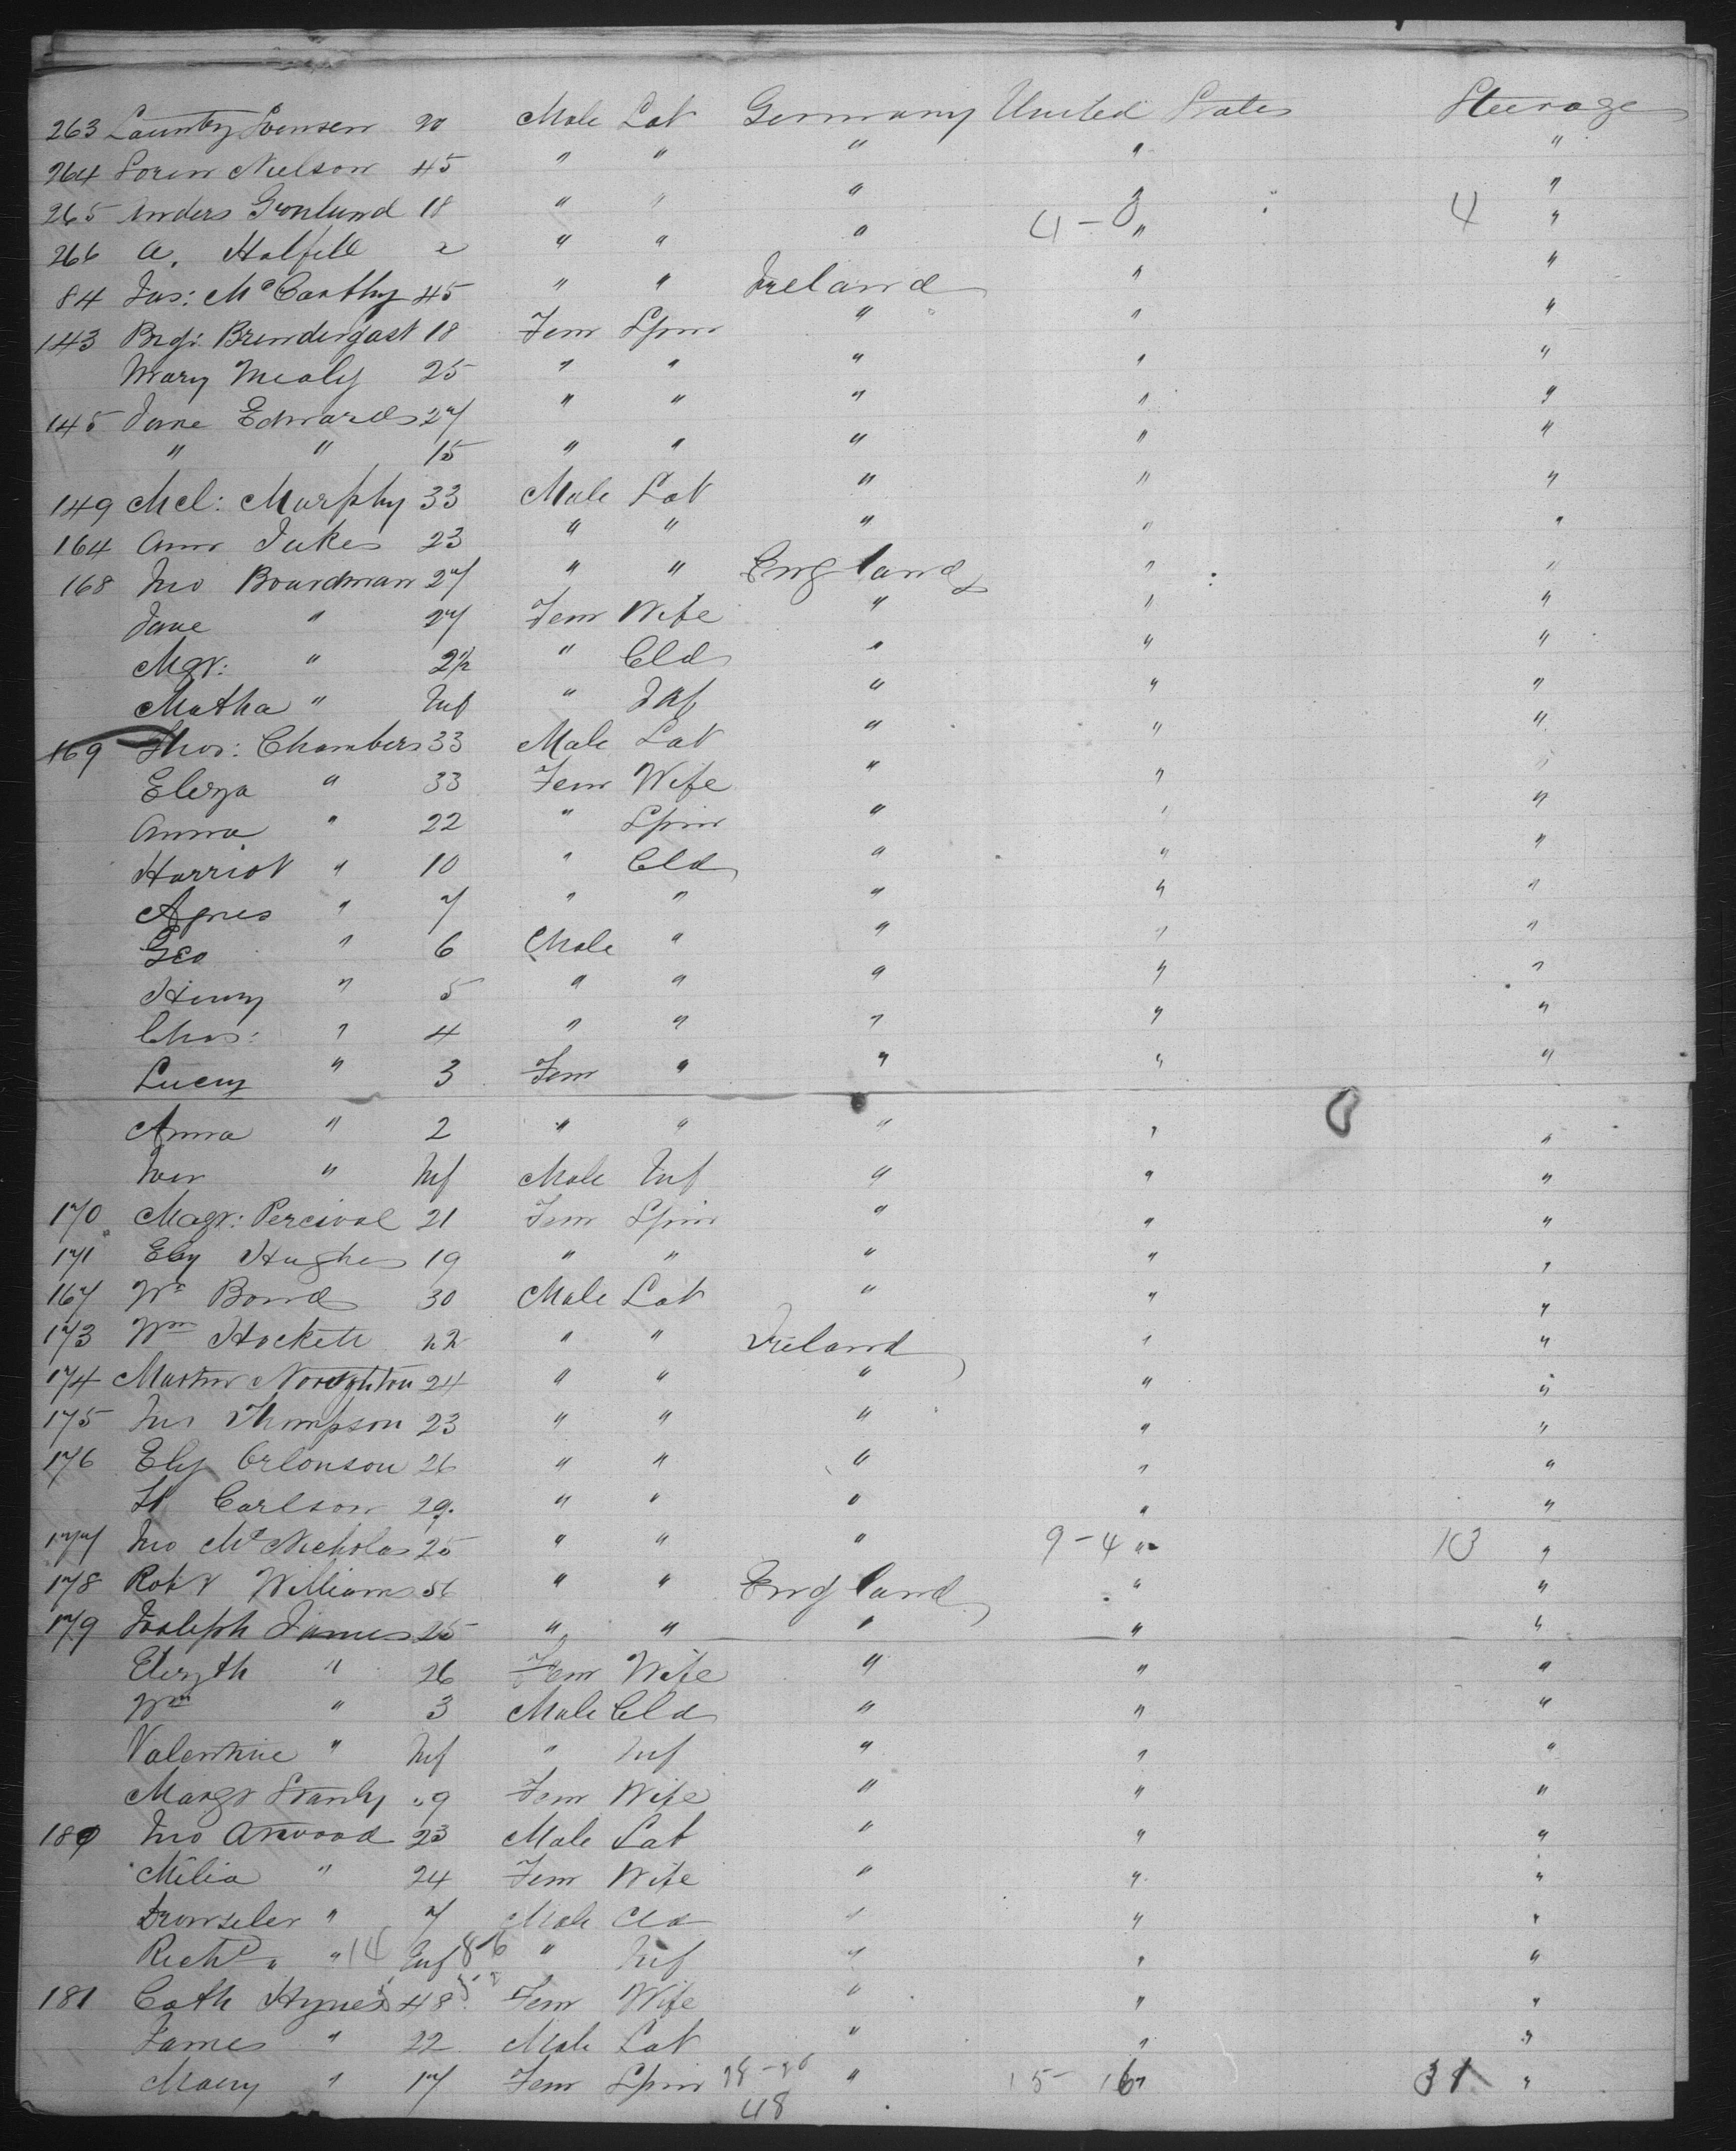 263 Launty Svensen 20 Male Lab Germany United States Steerage
264 Soren Nielson 45 " " " " "
265 Anders Gronlund 18 " " " " "
266 A. Halfill 2 " " " 4-0 " 4 "
84 Jas: McCarthy 45 " " Ireland " "
143 Brg: Brendergast 18 Fem Spin " " "
Mary Mealy 25 " " " " "
145 Jane Edwards 27 " " " " "
" " 15 " " " " "
149 Mcl: Murphy 33 Male Lab " " "
164 Ann Jukes 23 " " " " "
168 Jno Boardman 27 " " England " "
Jane " 27 Fem Wife " " "
Mgr: " 2½ " Cld " " "
Matha " Inf " Inf " " "
169 Thos: Chambers 33 Male Lab " " "
Eleza " 33 Fem Wife " " "
Anna " 22 " Spin " " "
Harriot " 10 " Cld " " "
Agnes " 7 " " " " "
Geo " 6 Male " " " "
Henry " 5 " " " " "
Chas: " 4 " " " " "
Lucey " 3 Fem " " " "
Anna " 2 " " " " "
" Inf Male Inf " " "
170 Magr: Percival 21 Fem Spin " " "
171 Ely Hughes 19 " " " " "
167 Wm Bond 30 Male Lab " " "
173 Wm Hockett 22 " " Ireland " "
174 Martin Noughton 24 " " " " "
175 Jno Thompson 23 " " " " "
176 Ely Orlonson 26 " " " " "
Carlson 29 " " " " "
177 Jno McNicholas 25 " " " 9-4 " 13 "
178 Robt Williams 56 " " England " "
179 Joseph James 25 " " " " "
Elezth " 26 Fem Wife " " "
Wm " 3 Male Cld " " "
Valentine " Inf " Inf " " "
Margr Stanly 9 Fem Wife " " "
180 Jno Atwood 23 Male Lab " " "
Milia " 24 Fem Wife " " "
" 7 Male Cld " " "
Richd " 14 Inf 86 " Inf " " "
181 Cath Hynes 48 Fem Wife " " "
James " 22 Male Lab " " "
Maery " 17 Fem Spin " 15-16 " 31 "
48